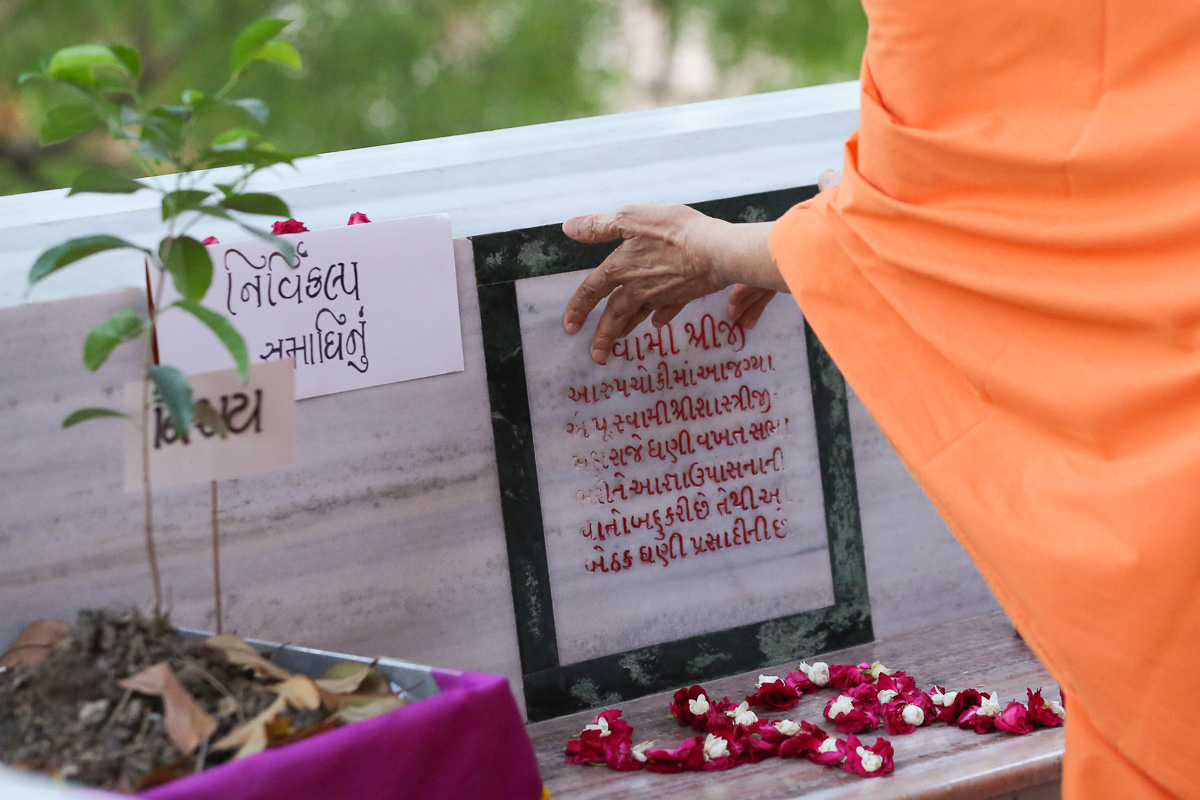 નિર્વિકલ્પ
સમાધિનું
નિશ્ચય
સ્વામી શ્રીજી
આરુપચોકીમાં આ જગ્યા
એ પૂ. સ્વામીશ્રી શાસ્ત્રીજી
મહારાજે ઘણી વખત સભા
ભરીને આજ્ઞા ઉપાસનાની
વાતો બહુ કરી છે તેથી આ
બેઠક ઘણી પ્રસાદીની છે